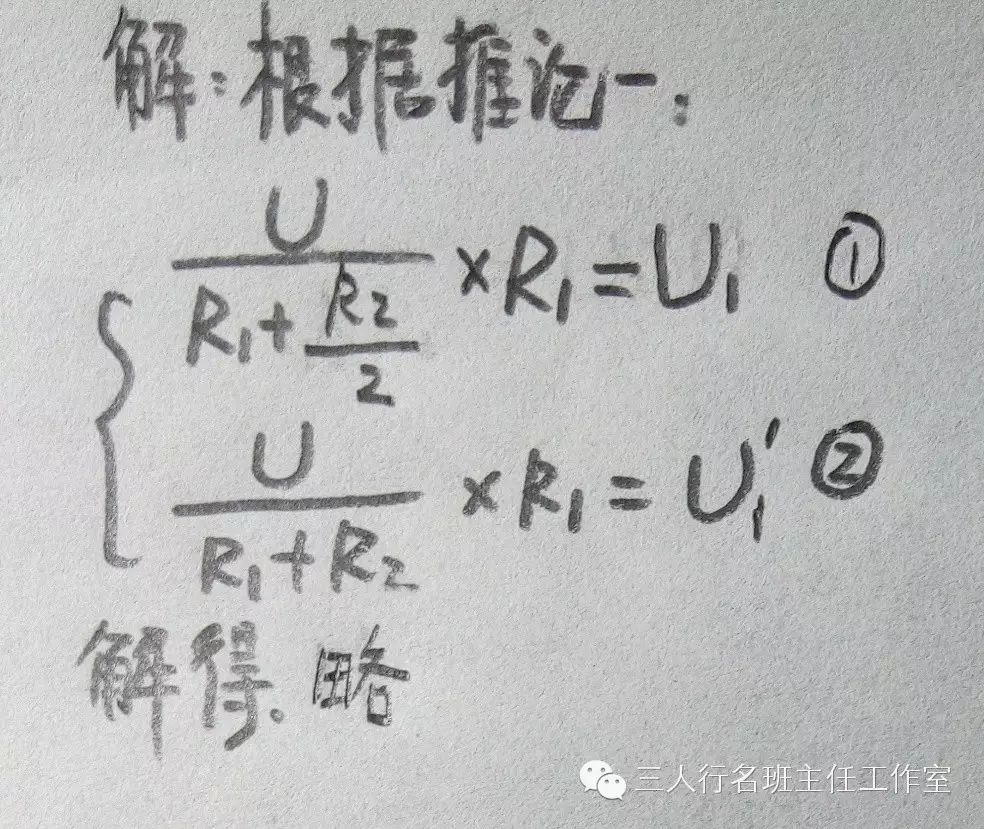 解：根据推论一：
U/(R₁+R₂/2) ×R₁=U₁ ①
U/(R₁+R₂) ×R₁=U₁′ ②
解得。略
三人行名班主任工作室